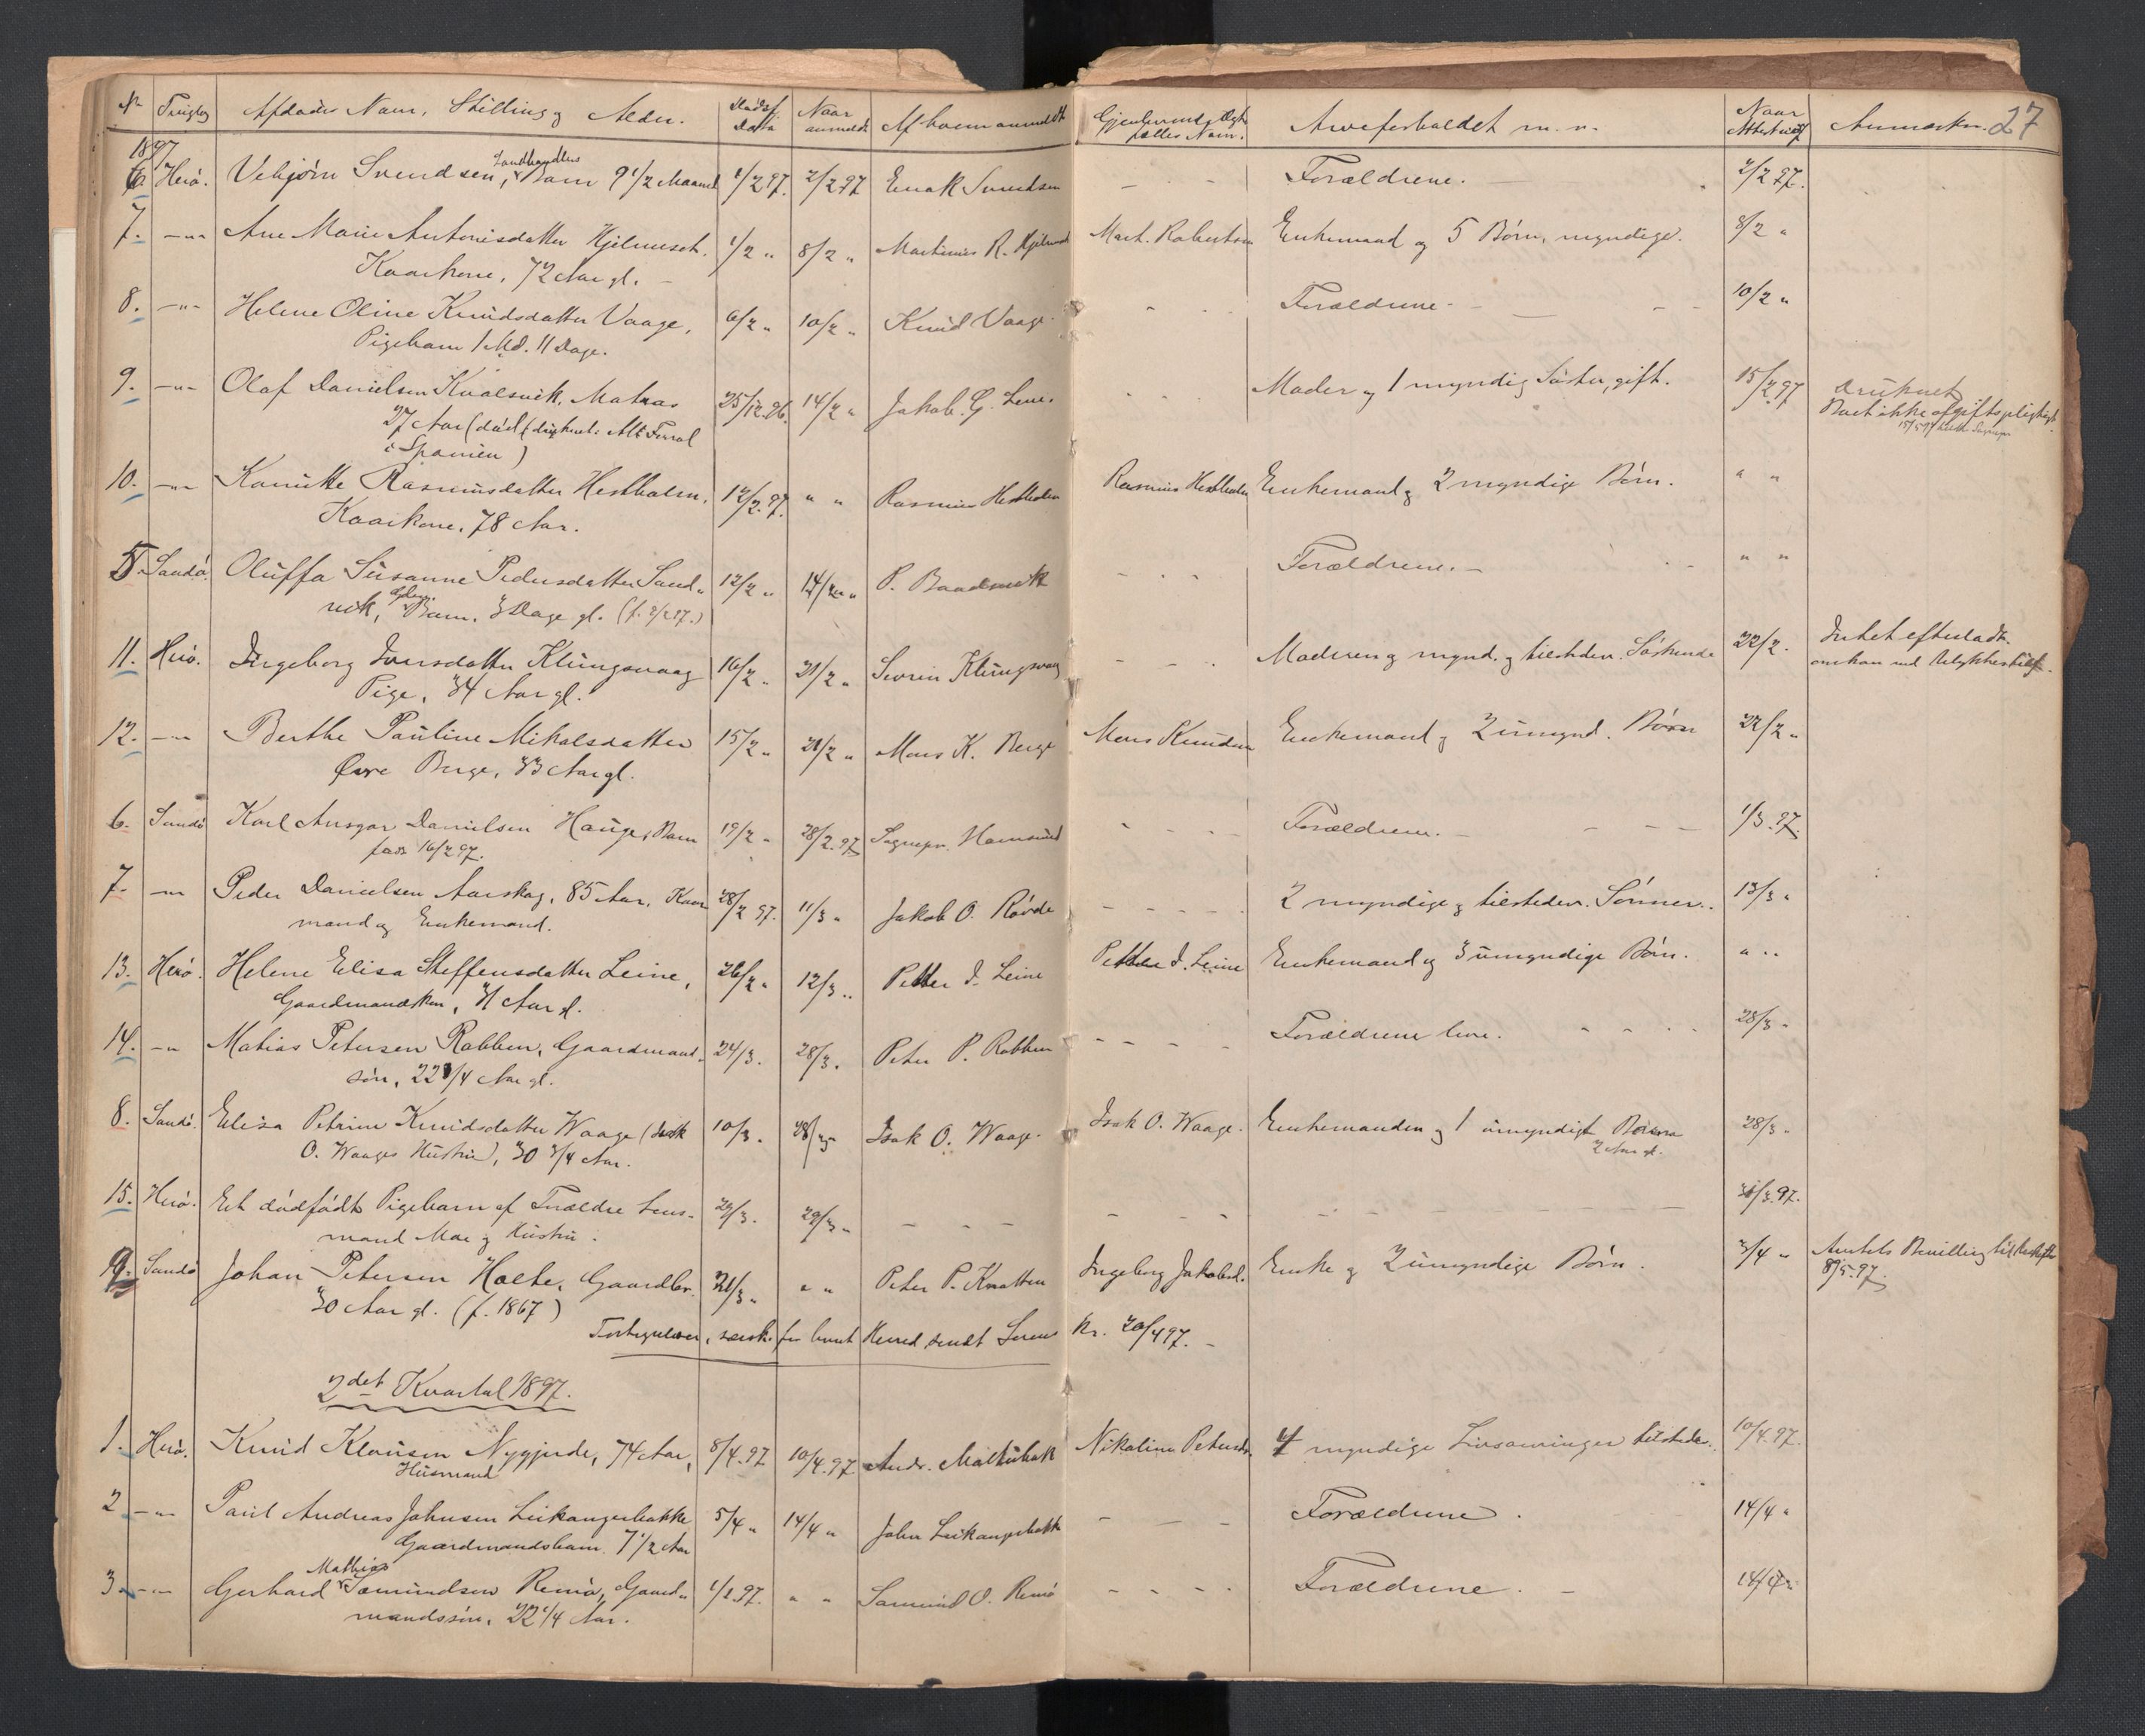 Nr. Tinglag Afdødes Navn, Stilling og Alder. Dødsf. Datto Naar anmeldt Af hvem anmeldt Gjenlevende Ægtefælles Navn. Arveforholdet m. v. Naar Attest udst. Anmærkn. 27
1897
6. Herø. Vebjørn Svendsen, Landhandlers Barn 9 1/2 Maaned 1/2 97. 2/2 97 Enok Svendsen - - - Forældrene. 2/2 97.
7. -"- Ane Marie Antonisdatter Hjelmeset. 1/2 " 8/2 " Martinus R. Hjelmeset Mart. Robertsen Enkemand og 5 Børn, myndige. 8/2 "
Kaarkone, 72 Aar gl.
8. -"- Helene Oline Knudsdatter Vaage, 6/2 " 10/2 " Knud Vaage. Forældrene. 10/2 "
Pigebarn 1 Md. 11 Dage.
9. -"- Olaf Danielsen Kvalsvik, Matros 25/12.96. 14/2 " Jakob G. Leine. Moder og 1 myndig Søster, gift. 15/2 97 Druknet
27 Aar (død (druknet: Ferrol Boet ikke afgiftspligtigt.
i Spanien)
10. -"- Rasmusdatter Hestholm. 12/2.97. " " Rasmus Hestholm Rasmus Hestholm Enkemand og 2 myndige Børn. " "
Kaarkone, 78 Aar.
5. Sandø. Oluffa Susanne Pedersdatter Sand- 12/2 " 14/2 " P. Baadsvik - - - Forældrene. - " "
vik, Barn, 3 Dage gl. (f. 9/2 97.)
11. Herø. Ingeborg Iversdatter Klungsvaag 16/2 " 21/2 " Sevrin Klungsvaag - - - Moderen og mynd. og tilstedev. Søskende 22/2. Intet efterladt.
Pige, 34 Aar gl.
12. -"- Berthe Pauline Mikalsdatter 15/2 " 21/2 " Mons K. Berge Mons Knudsen Enkemand og 2 umynd. Børn 22/2 "
Øvre Berge, 33 Aar gl.
6. Sandø Karl Ansgar Danielsen Hauge, Barn 19/2 " 28/2.97 Sognepr. Hamsund - - - Forældrene. - - - 1/3.97.
født 16/2 97.
7. -"- Peder Danielsen Aarskog, 85 Aar, Kaar- 28/2 97. 11/3 " Jakob O. Røvde - - - - 2 myndige og tilstedev. Sønner. 13/3 "
mand og Enkemand.
13. Herø. Helene Elisa Steffensdatter Leine, 26/2 " 12/3 " Petter J. Leine Petter J. Leine Enkemand og 3 umyndige Børn. " "
Gaardmandskone, 31 Aar gl.
14. -"- Matias Petersen Rabben, Gaardmand- 24/3. 28/3. Peter P. Rabben - - - - Forældrene leve. 28/3 "
søn, 22 3/4 Aar gl.
8. Sandø. Elisa Petrine Knudsdatter Waage (Isak 10/3. 28/3 Isak O. Waage. Isak O. Waage. Enkemanden og 1 umyndigt Barn 28/3 "
O. Waages Hustru), 30 3/4 Aar. 2 Aar gl.
15. Herø. Et dødfødt Pigebarn af Forældre Lens- 29/3. 29/3 " - - - - - - 31/3.97.
mand Moe og Hustru.
9. Sandø Johan Petersen Holte, Gaardbr. 21/3 " " " Peter P. Knotten Ingeborg Jakobsd. Enke og 2 umyndige Børn. 3/4 " Amtets Bevilling til
30 Aar gl. (f. 1867) 8/5.97.
Fortegnelser, særsk. for hvert Herred sendt Soren- skr. 20/4 97. -
2det Kvartal 1897.
1. Herø. Knud Klausen Nygjerde, 74 Aar, 8/4.97 10/4.97 Andr. Moltubak Nikoline Petersdr. 4 myndige Livsarvinger tilstede. 10/4.97.
Husmand
2 -"- Paul Andreas Johnsen Leikangerbakke 5/4 " 14/4 " John Leikangerbakk - - - Forældrene. 14/4 "
Gaardmandsbarn. 7 1/2 Aar
Mathias
3 -"- Gerhard Sæmundsen Remø, Gaard- 1/1.97. " " Sæmund O. Remø - - - - Forældrene. -
mandssøn, 22 1/4 Aar.